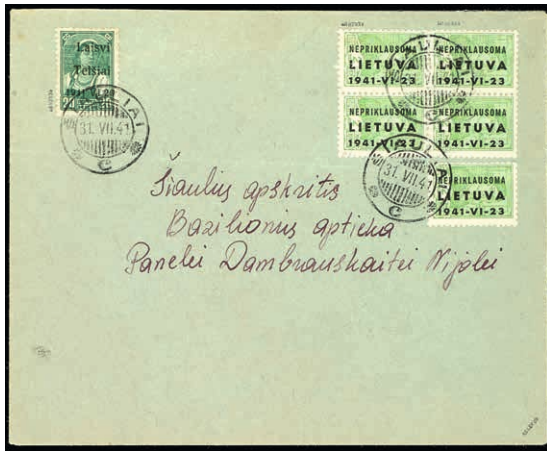 Laisvi
Telšiai
1941
NEPRIKLAUSOMA
LIETUVA
1941-VI-23
NEPRIKLAUSOMA
LIETUVA
1941-VI-23
NEPRIKLAUSOMA
LIETUVA
1941-VI-23
NEPRIKLAUSOMA
LIETUVA
1941-VI-23
NEPRIKLAUSOMA
LIETUVA
1941-VI-23
31. VII. 41
C
31. VII. 41
C
Šiaulių apskritis
Bazilionių aptieka
Panelei Dambrauskaitei Nijolei